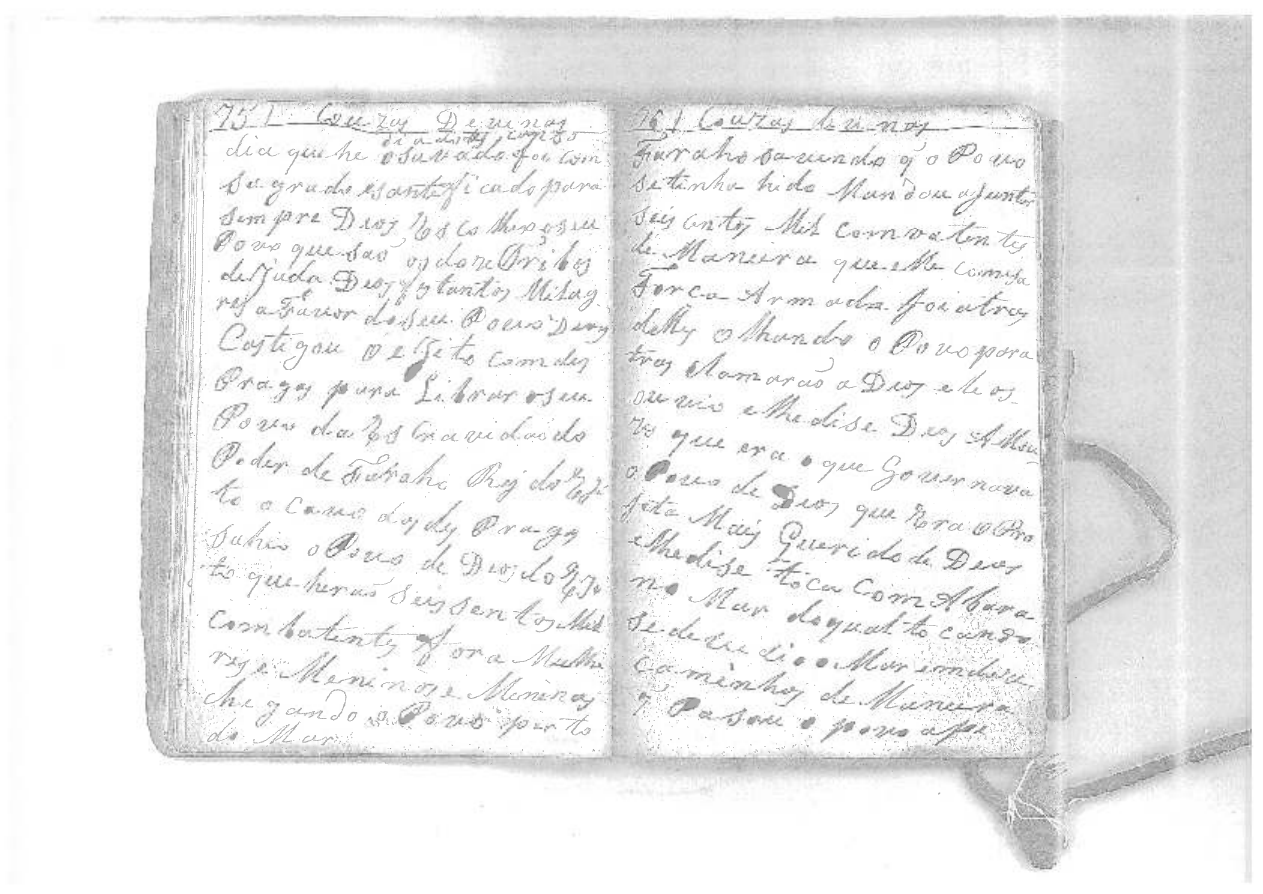 75 | Couzas Devinas
dia que he o savado foi com
sagrado esanteficado para
sempre Deos Escolheo o seu
Povo que saõ os doze Tribos
de Juda Deos fes tantos Milag
res a Favor do seu Povo Deos
Castigou o egito com des
Pragas para Librar o seu
Povo da Escravidaõ do
Poder de Faraho Rej do Egi
to o cavo das des Pragas
sahio o Povo de Deos do Egi
to que heraõ seis sentos Mil
Combatentes fora Mulhe
res e Meninos e Meninas
chegando o Povo perto
do Mar
76 | Couzas Devinas
Faraho savendo q̃ o Povo
se tinha hido Mandou ajuntar
seis centos Mil comvatentes
de Maneira que elle com sua
Forca Armada foi atras
delles olhando o Povo para
tras clamaraõ a Deos e le os
ouvio e lhe dise Deos A Moi
zes que era o que Governava
o Povo de Deos que Era o Pro
feta Mais Querido de Deos
e lhe dise toca com A bara
no Mar do qual tocando
se devedio o Mar em doze
caminhos de Maneira
q̃ Pasou o povo a pe